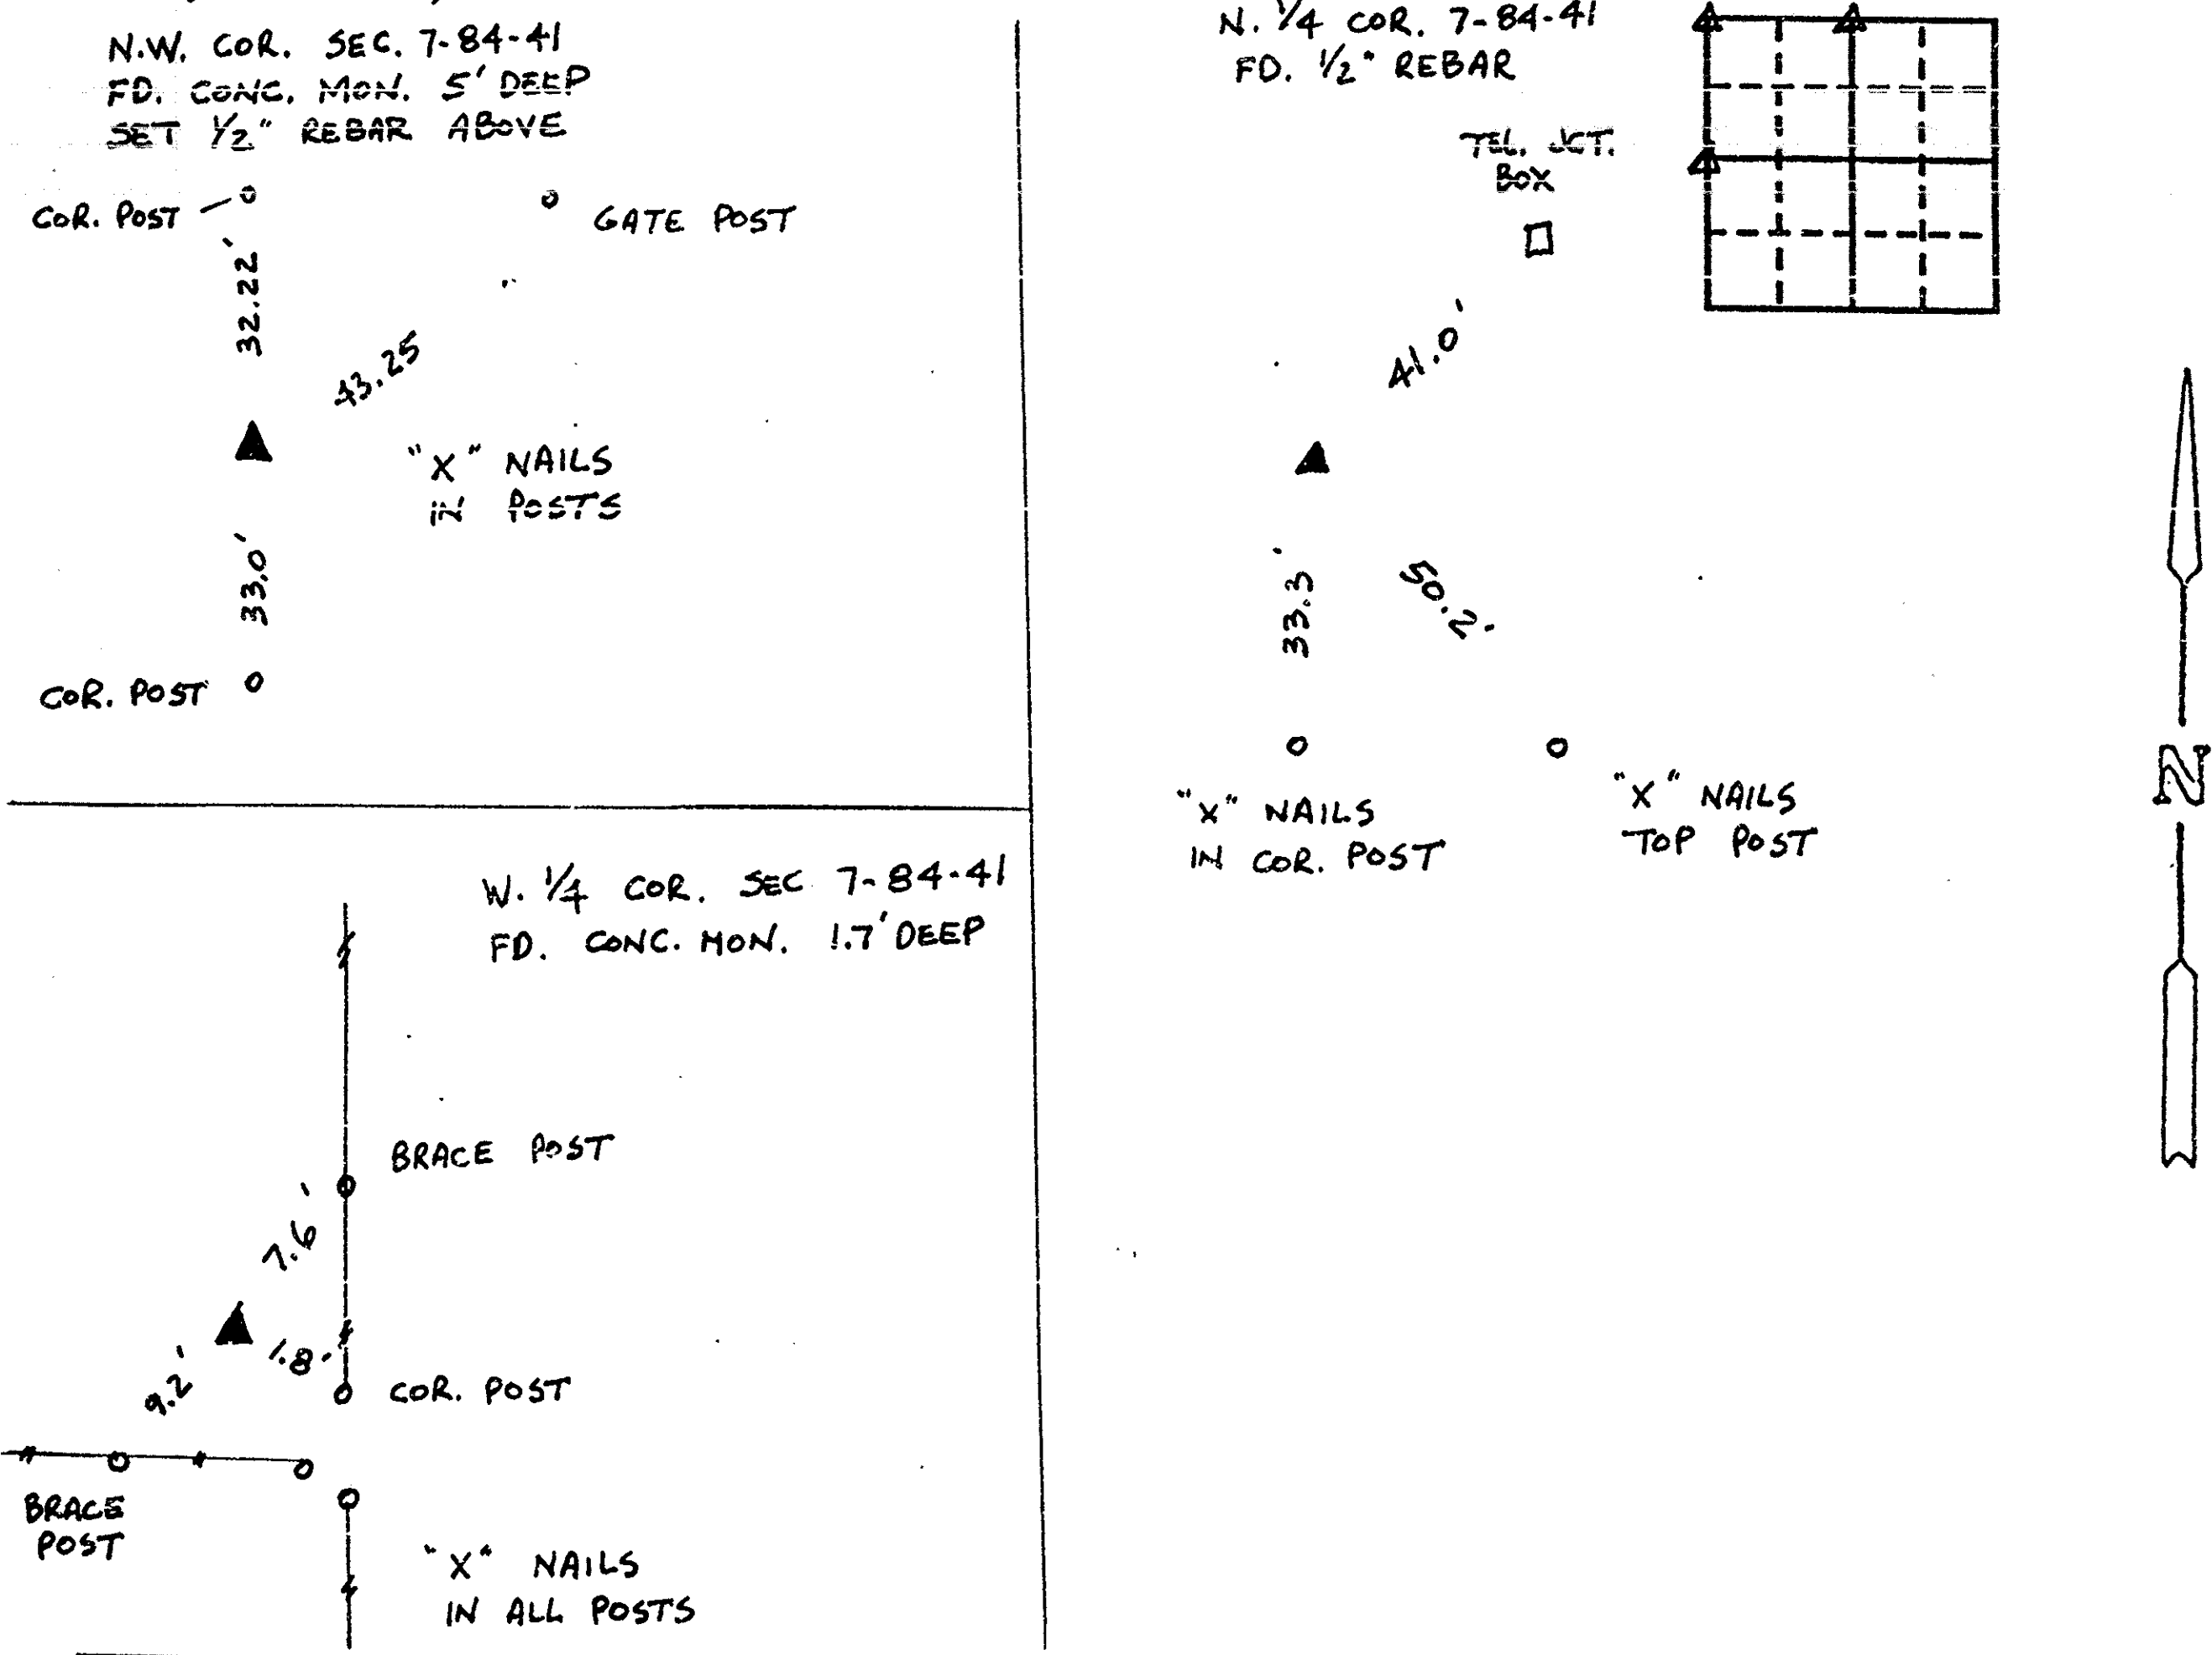 N.W. COR. SEC. 7-84-41
FD. CONC. MON. 5' DEEP
SET 1/2" REBAR ABOVE
COR. POST
GATE POST
32.22'
43.25
"X" NAILS
IN POSTS
33.0'
COR. POST
N. 1/4 COR. 7-84-41
FD. 1/2" REBAR
TEL. JCT.
BOX
41.0'
33.3'
50.2'
"X" NAILS
IN COR. POST
"X" NAILS
TOP POST
N
W. 1/4 COR. SEC 7-84-41
FD. CONC. MON. 1.7' DEEP
BRACE POST
7.6'
1.8'
9.2'
COR. POST
BRACE
POST
"X" NAILS
IN ALL POSTS